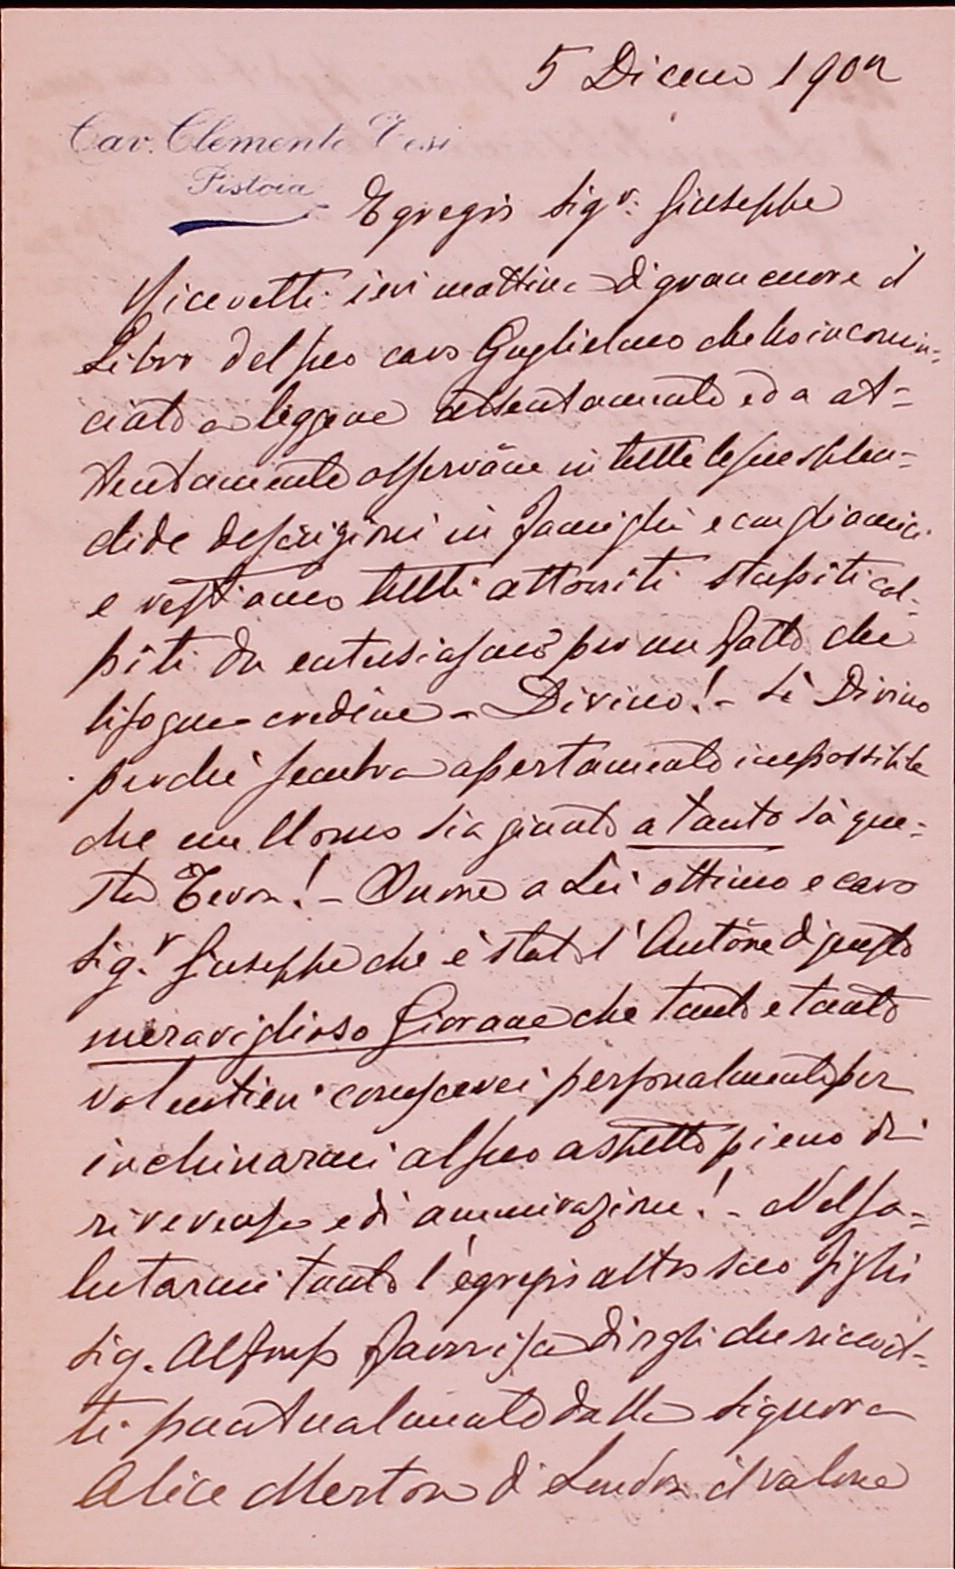 5 Dicem 1902
Cav. Clemente Tesi
Pistoia
Egregio Sigr. Giuseppe
Ricevetti ieri mattina di gran cuore il
Libro del suo caro Guglielmo che ho incomin-
ciato a leggere attentamente ed a at-
tentamente osservare in tutte le sue splen-
dide descrizioni in famiglia e con gli amici
e restiamo tutti attoniti stupiti col-
piti da entusiasmo per un fatto che
bisogna credere - Divino! - Sì Divino
perchè sembra apertamente impossibile
che un Uomo sia giunto a tanto sù que-
sta Terra! - Onore a Lei ottimo e caro
Sig.r Giuseppe che è stato l'Autore di questo
meraviglioso Giovane che tanto e tanto
volentieri conoscerei personalmente per
inchinarmi al suo aspetto pieno di
riverenza e di ammirazione! - Nel sa-
lutarmi tanto l'egregio altro suo figlio
Sig. Alfonso favorisca dirgli che ricevet-
ti puntualmente dalla Signora
Alice Merton di Londra il valore